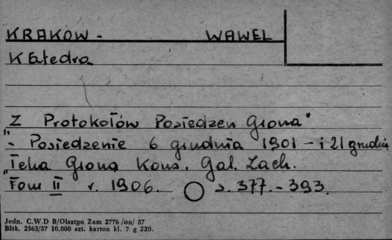 KRAKÓW - WAWEL
Katedra
"Z Protokołów Posiedzeń Grona"
- Posiedzenie 6 grudnia 1901 - i 21 grudnia
"Teka Grona Kons. Gal. Zach.
Tom II r. 1906. s. 377.-393.
Jedn. C.W.D B/Olsztyn Zam 2776 /on/ 57
Bltk. 2563/57 10.000 szt. karton kl. 7 g 220.